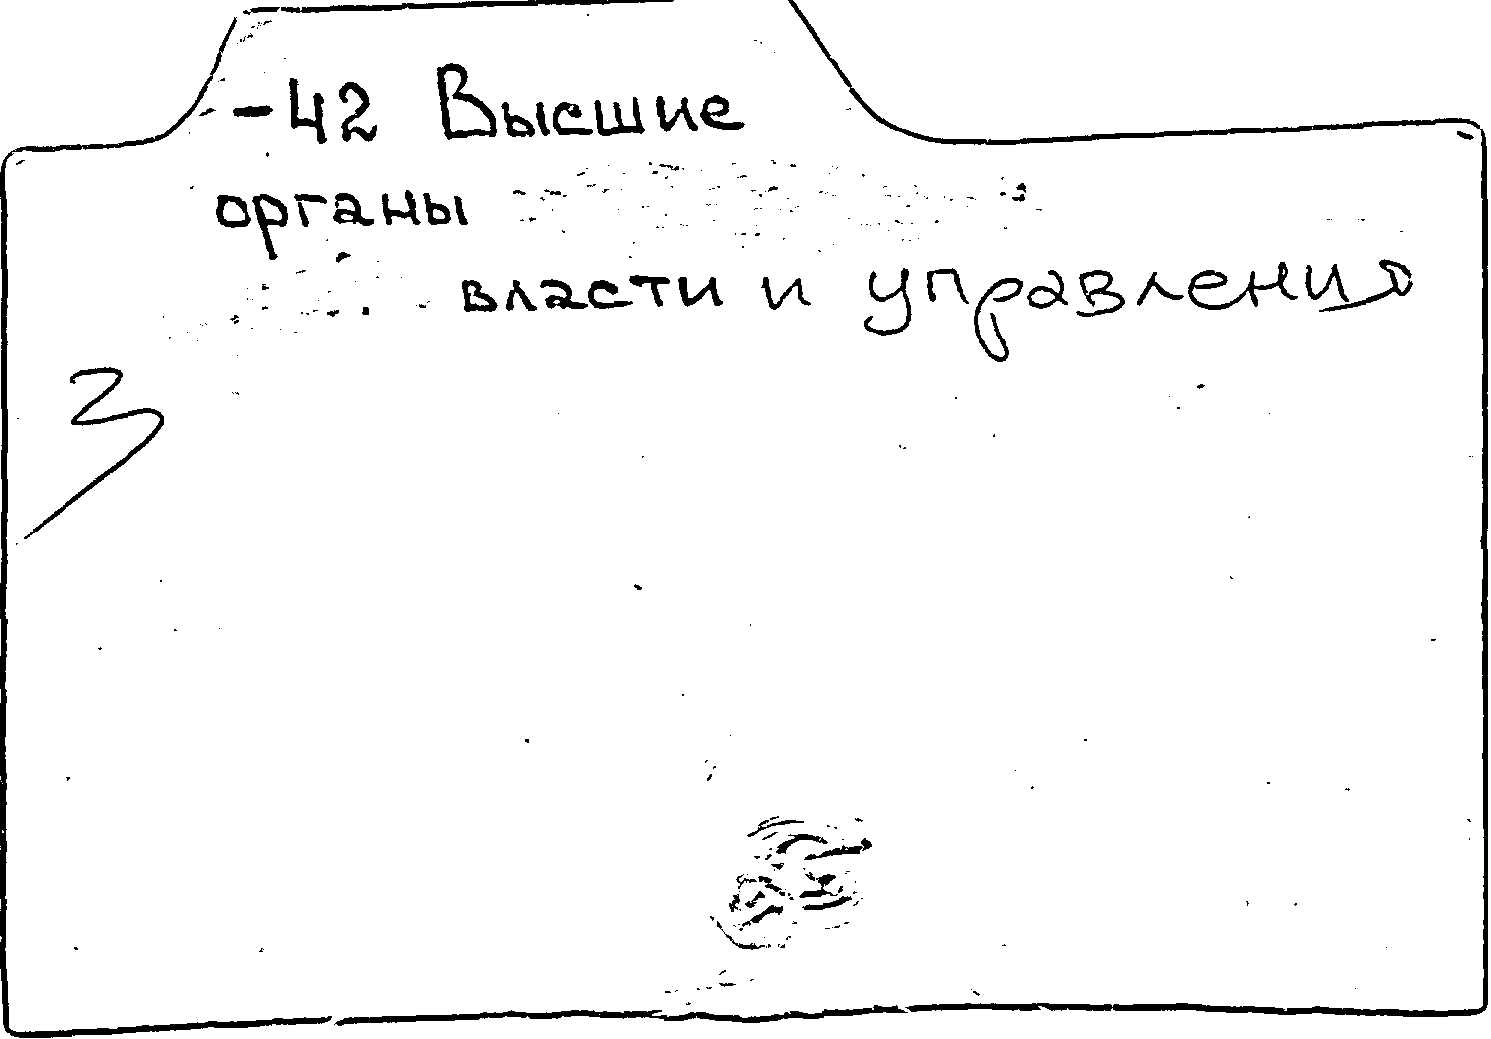 -42 Высшие
органы
власти и управления
3